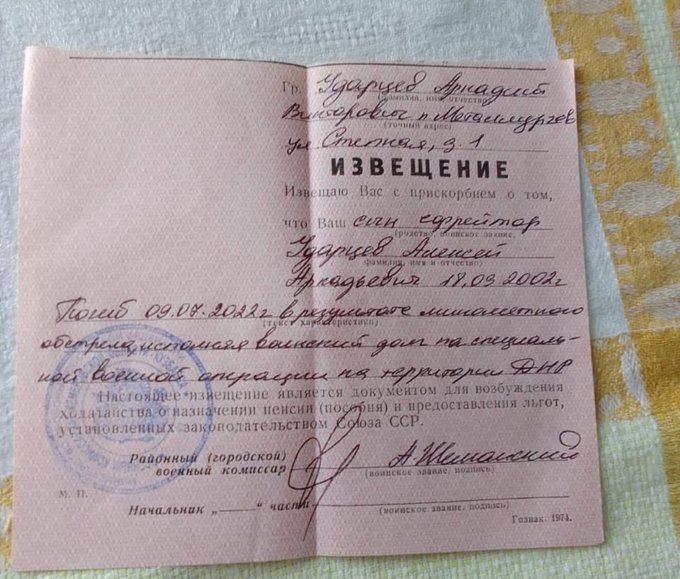 Гр. Ударцев Аркадий
(фамилия, имя отчество)
Викторович п. Металлургов
(точный адрес)
ул. Степная, д. 1
ИЗВЕЩЕНИЕ
Извещаю Вас с прискорбием о том,
что Ваш сын ефрейтор
(родство, воинское звание,
Ударцев Алексей
фамилия, имя и отчество)
Аркадьевич 18.03.2002г
Погиб 09.07.2022г в результате минометного
(текст характеристики)
обстрела, исполняя воинский долг на специаль-
ной военной операции на территории ДНР
Настоящее извещение является документом для возбуждения
ходатайства о назначении пенсии (пособия) и предоставления льгот,
установленных законодательством Союза ССР.
Районный (городской)
военный комиссар
(воинское звание, подпись)
М. П.
Начальник „——“ части
(воинское звание, подпись)
Гознак. 1974.